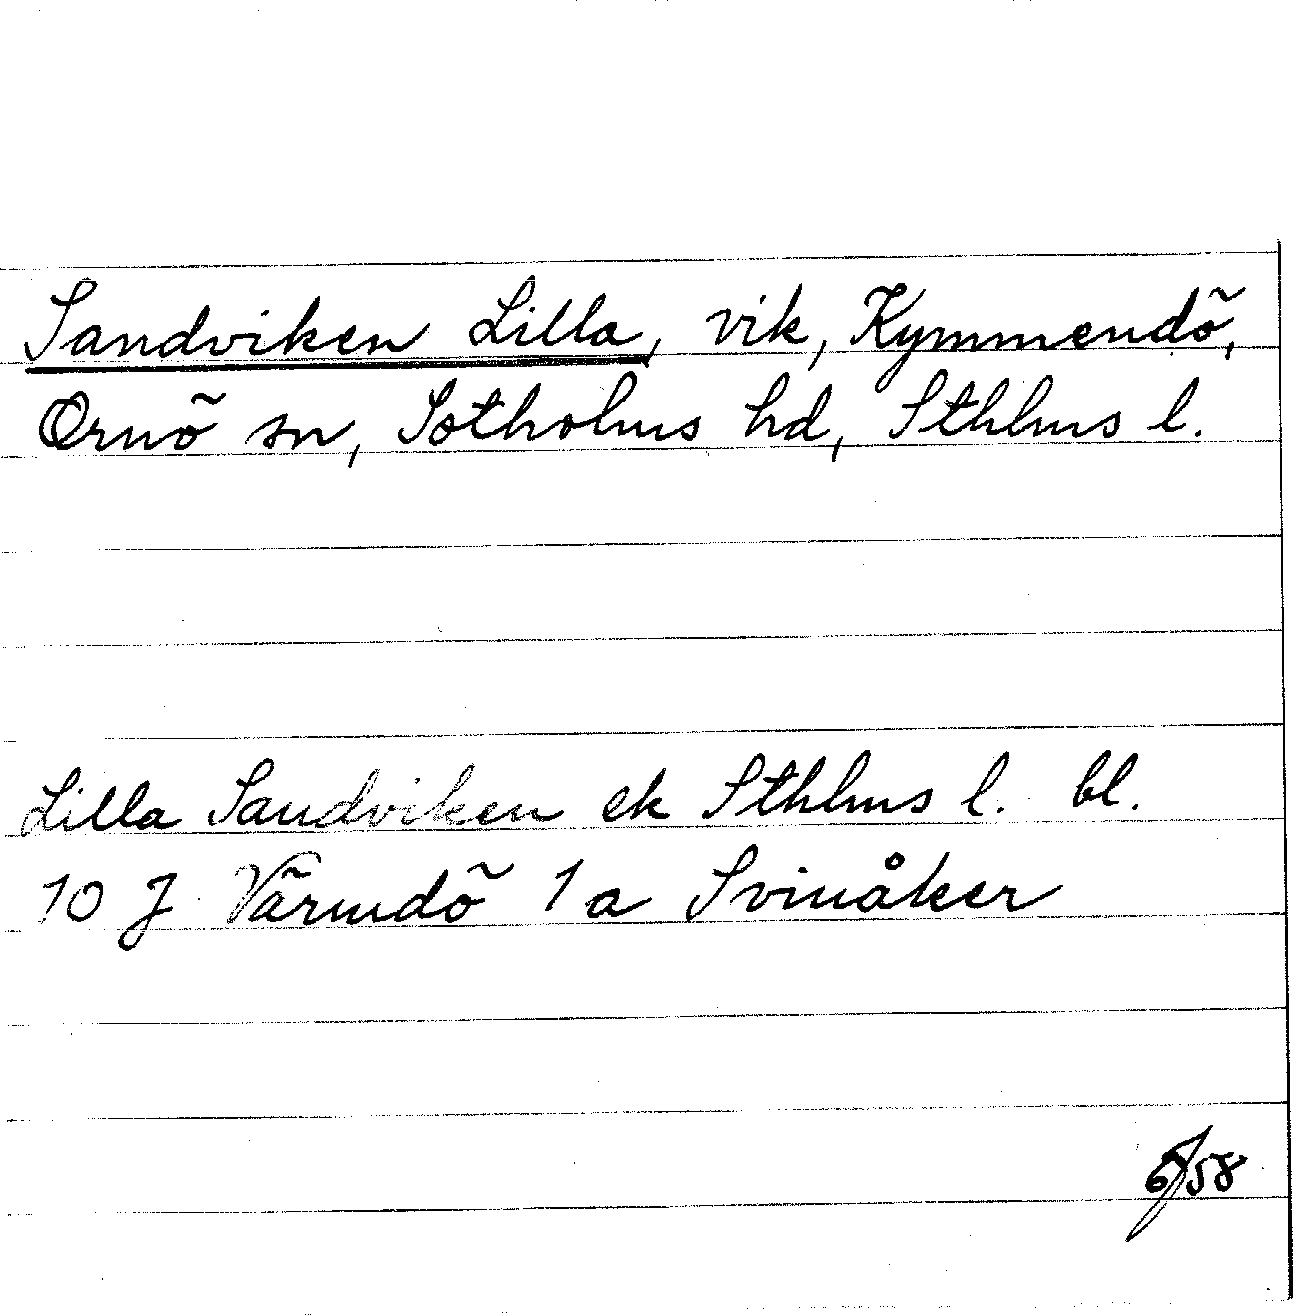 Sandviken Lilla, vik, Kymmendö,
Ornö sn, Sotholms hd, Sthlms l.
Lilla Sandviken ek Sthlms l. bl.
10 J Värmdö 1 a Svinåker